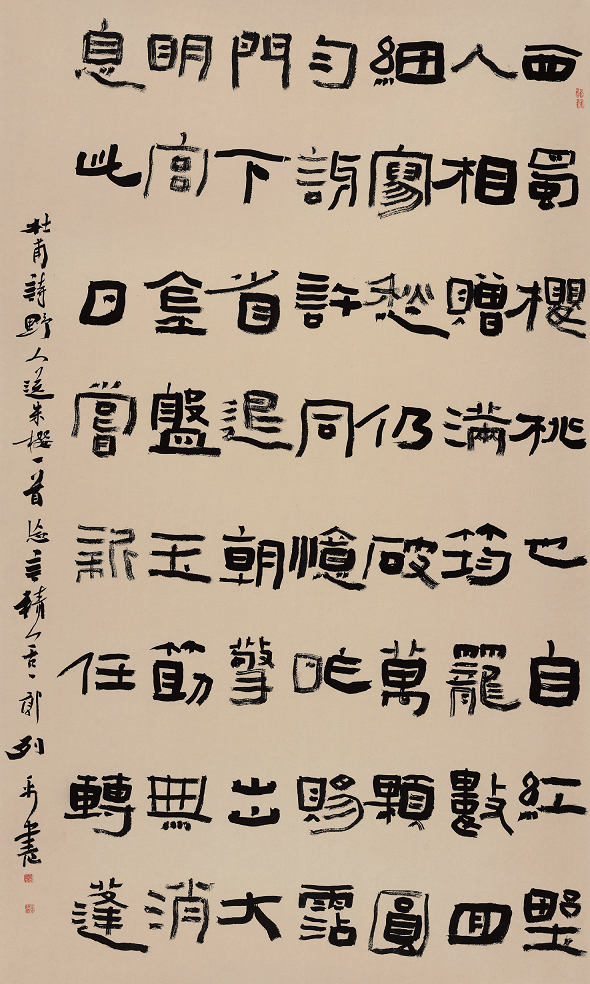 西蜀櫻桃也自紅野
人相贈滿筠籠數回
細寫愁仍破萬顆圓
勻訝許同憶昨賜霑
門下省退朝擎出大
明宮金盤玉筯無消
息此日嘗新任轉蓬
杜甫詩野人送朱櫻一首 郭列平書